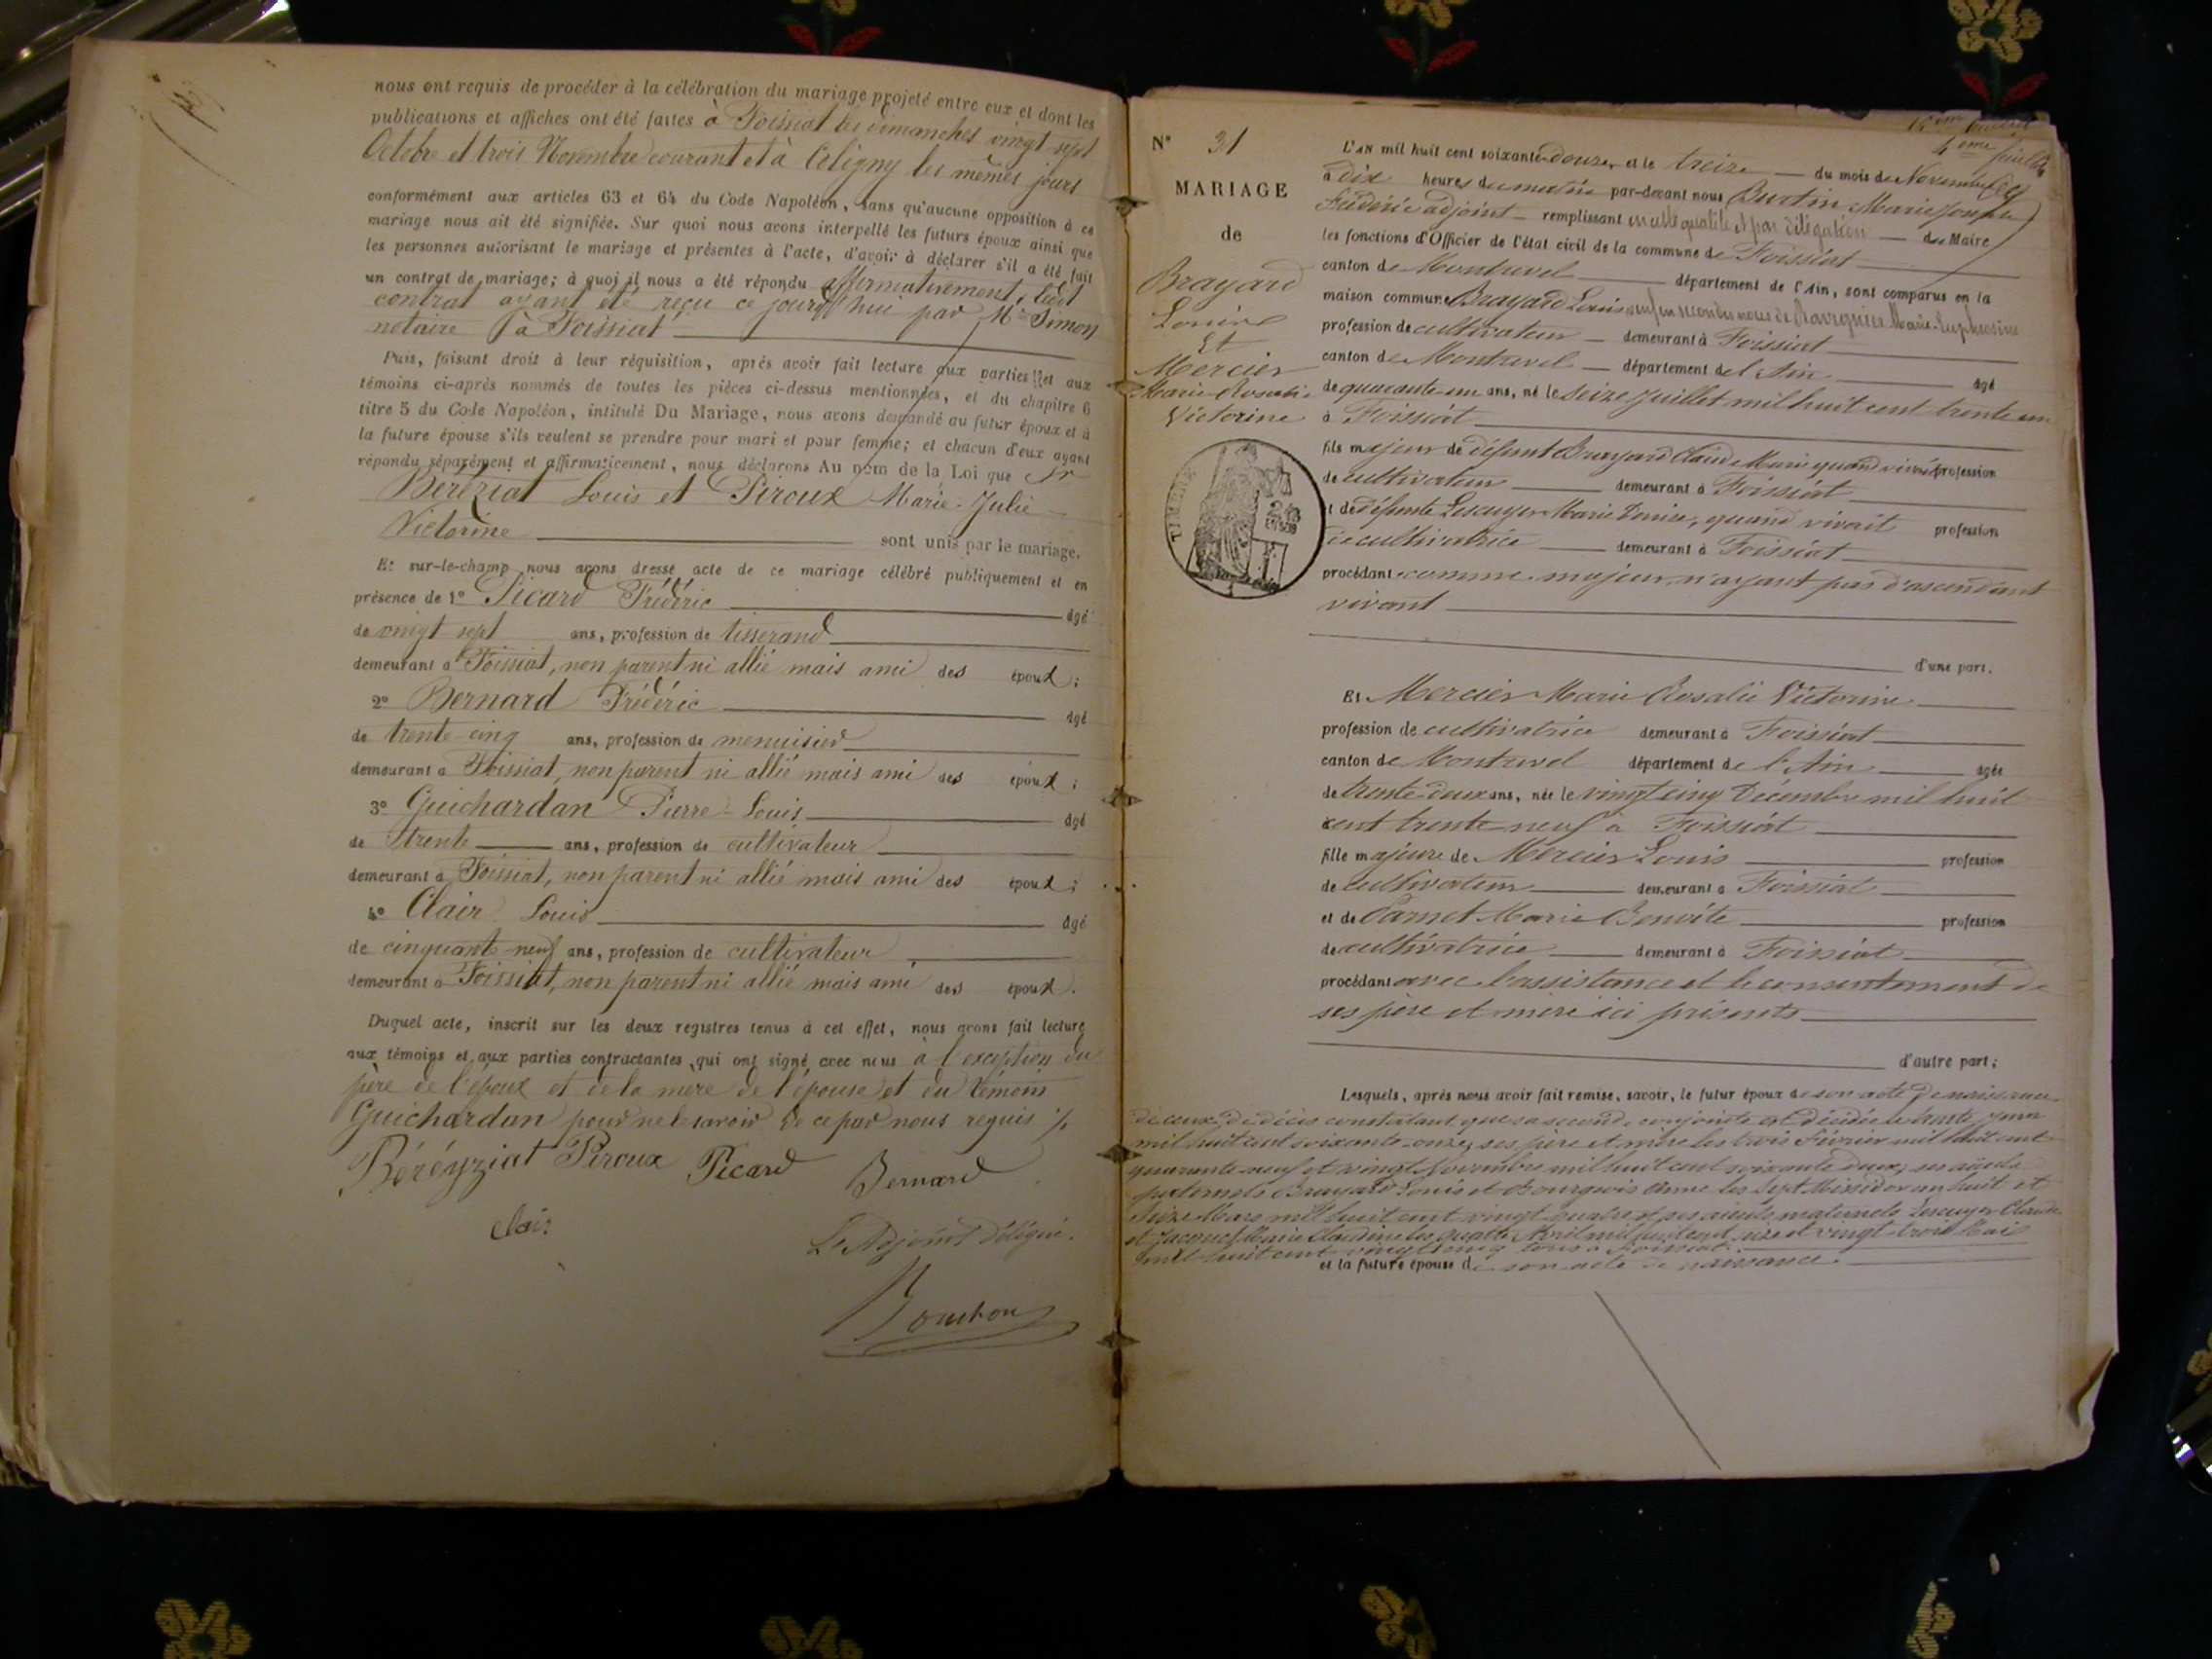 nous ont requis de procéder à la célébration du mariage projeté entre eux et dont les
publications et affiches ont été faites à Foissiat les dimanches vingt sept
Octobre et trois Novembre courant et à Coligny les mêmes jours
conformément aux articles 63 et 64 du Code Napoléon, sans qu'aucune opposition à ce
mariage nous ait été signifiée. Sur quoi nous avons interpellé les futurs époux ainsi que
les personnes autorisant le mariage et présentes à l'acte, d'avoir à déclarer s'il a été fait
un contrat de mariage; à quoi il nous a été répondu affirmativement, ledit
contrat ayant été reçu ce jourd'hui par Me Simon
notaire à Foissiat
Puis, faisant droit à leur réquisition, après avoir fait lecture aux parties et aux
témoins ci-après nommés de toutes les pièces ci-dessus mentionnées, et du chapitre 6
titre 5 du Code Napoléon, intitulé Du Mariage, nous avons demandé au futur époux et à
la future épouse s'ils veulent se prendre pour mari et pour femme; et chacun d'eux ayant
répondu séparément et affirmativement, nous déclarons Au nom de la Loi que
Béréziat Louis et Piroux Marie-Julie
Victorine sont unis par le mariage.
Et sur-le-champ nous avons dressé acte de ce mariage célébré publiquement et en
présence de 1° Picard Frédéric âgé
de vingt sept ans, profession de tisserand
demeurant à Foissiat, non parent ni allié mais ami des époux;
2° Bernard Frédéric âgé
de trente-cinq ans, profession de menuisier
demeurant à Foissiat, non parent ni allié mais ami des époux;
3° Guichardan Pierre-Louis âgé
de trente ans, profession de cultivateur
demeurant à Foissiat, non parent ni allié mais ami des époux;
4° Clair Louis âgé
de cinquante-neuf ans, profession de cultivateur
demeurant à Foissiat, non parent ni allié mais ami des époux.
Duquel acte, inscrit sur les deux registres tenus à cet effet, nous avons fait lecture
aux témoins et aux parties contractantes, qui ont signé avec nous à l'exception du
père de l'époux et de la mère de l'épouse et du témoin
Guichardan pour ne le savoir de ce par nous requis
Béréyziat Piroux Picard Bernard
Clair
Le Adjoint Délégué.
Bouchoux
4eme feuillet
N° 31
MARIAGE
de
Brayard
Louis
Et
Mercier
Marie Rosalie
Victorine
L'AN mil huit cent soixante-douze, et le treize du mois de Novembre
à dix heures du matin par-devant nous Burtin Marie Joseph
Frédéric adjoint remplissant en cette qualité et par délégation du Maire
les fonctions d'Officier de l'état civil de la commune de Foissiat
canton de Montrevel département de l'Ain, sont comparus en la
maison commune Brayard Louis veuf en secondes noces de Marie Euphrosine
profession de cultivateur demeurant à Foissiat
canton de Montrevel département de l'Ain âgé
de quarante un ans, né le Seize Juillet mil huit cent trente un
à Foissiat
fils majeur de défunt Brayard Claude Marie quand vivait profession
de cultivateur demeurant à Foissiat
et de défunte Lescuyer Marie Denise, quand vivait profession
de cultivatrice demeurant à Foissiat
procédant comme majeur n'ayant pas d'ascendant
vivant
d'une part.
Et Mercier Marie Rosalie Victorine
profession de cultivatrice demeurant à Foissiat
canton de Montrevel département de l'Ain âgée
de trente-deux ans, née le vingt cinq Décembre mil huit
cent trente-neuf à Foissiat
fille majeure de Mercier Louis profession
de cultivateur demeurant à Foissiat
et de Carnet Marie Benoite profession
de cultivatrice demeurant à Foissiat
procédant avec l'assistance et le consentement de
ses père et mère ici présents
d'autre part;
Lesquels, après nous avoir fait remise, savoir, le futur époux de son acte de naissance
de ceux de décès constatant que sa seconde conjointe est décédée le
mil huit cent soixante-onze, ses père et mère les trois Février mil huit cent
quarante neuf et vingt Novembre mil huit cent soixante deux, ses aïeuls
paternels Brayard Louis et Bourgeois Anne les sept Messidor an huit et
Seize Mars mil huit cent vingt quatre et ses aïeuls maternels Lescuyer Claude
et Marie Claudine les quatre Avril mil huit cent et vingt-trois Mai
mil huit cent vingt cinq tous à Foissiat.
et la future épouse de son acte de naissance.